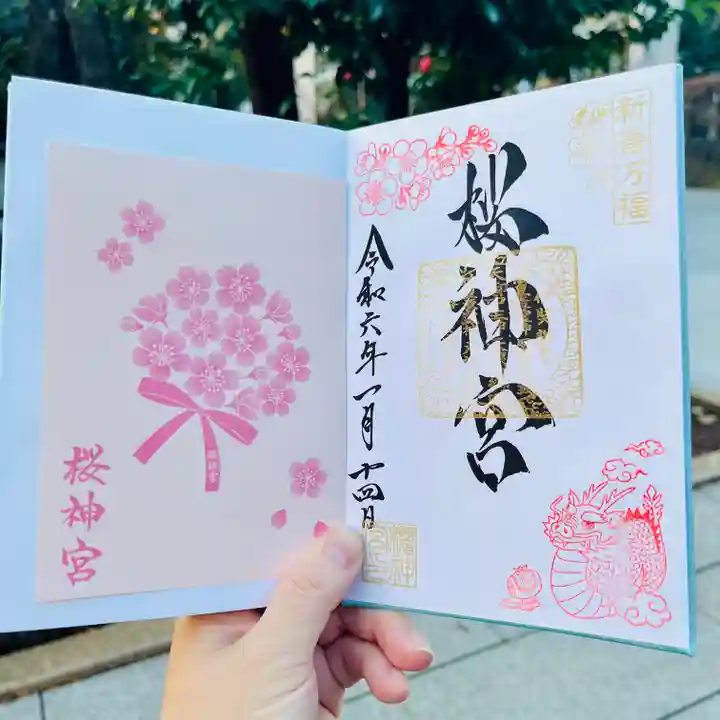 桜神宮
新春万福
桜神宮
令和六年一月十四日